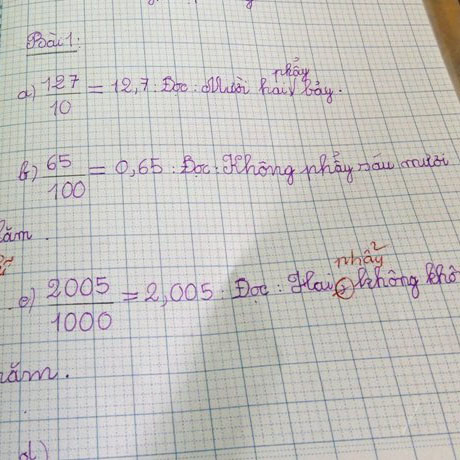 Bài 1:
phẩy
a) 127/10 = 12,7. Đọc: Mười hai bảy.
b) 65/100 = 0,65. Đọc: Không phẩy sáu mươi
lăm.
phẩy
c) 2005/1000 = 2,005. Đọc: Hai không khô
năm.
d)